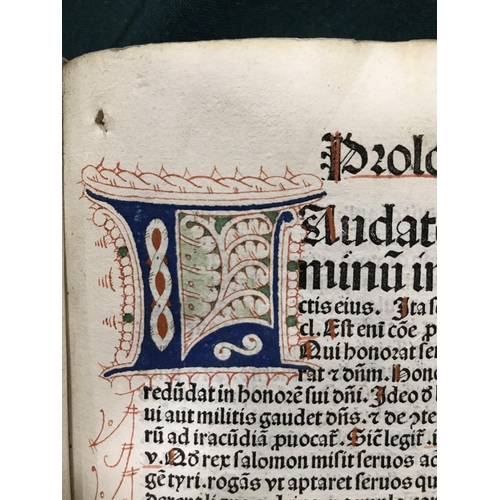 Prolo
Laudate
minū in
ctis eius. Ita s
cl. Est eni cōe p
Qui honorat ser
rat ⁊ dñm. Hono
redūdat in honorē sui dñi. Ideo ð l
ui aut militis gaudet dñs. ⁊ de ɔte
rū ad iracūdiā ꝓuocat. Sic̄ legit̄. i
v. Qð rex salomon misit seruos ad
gē tyri. rogās vt aptaret seruos qu